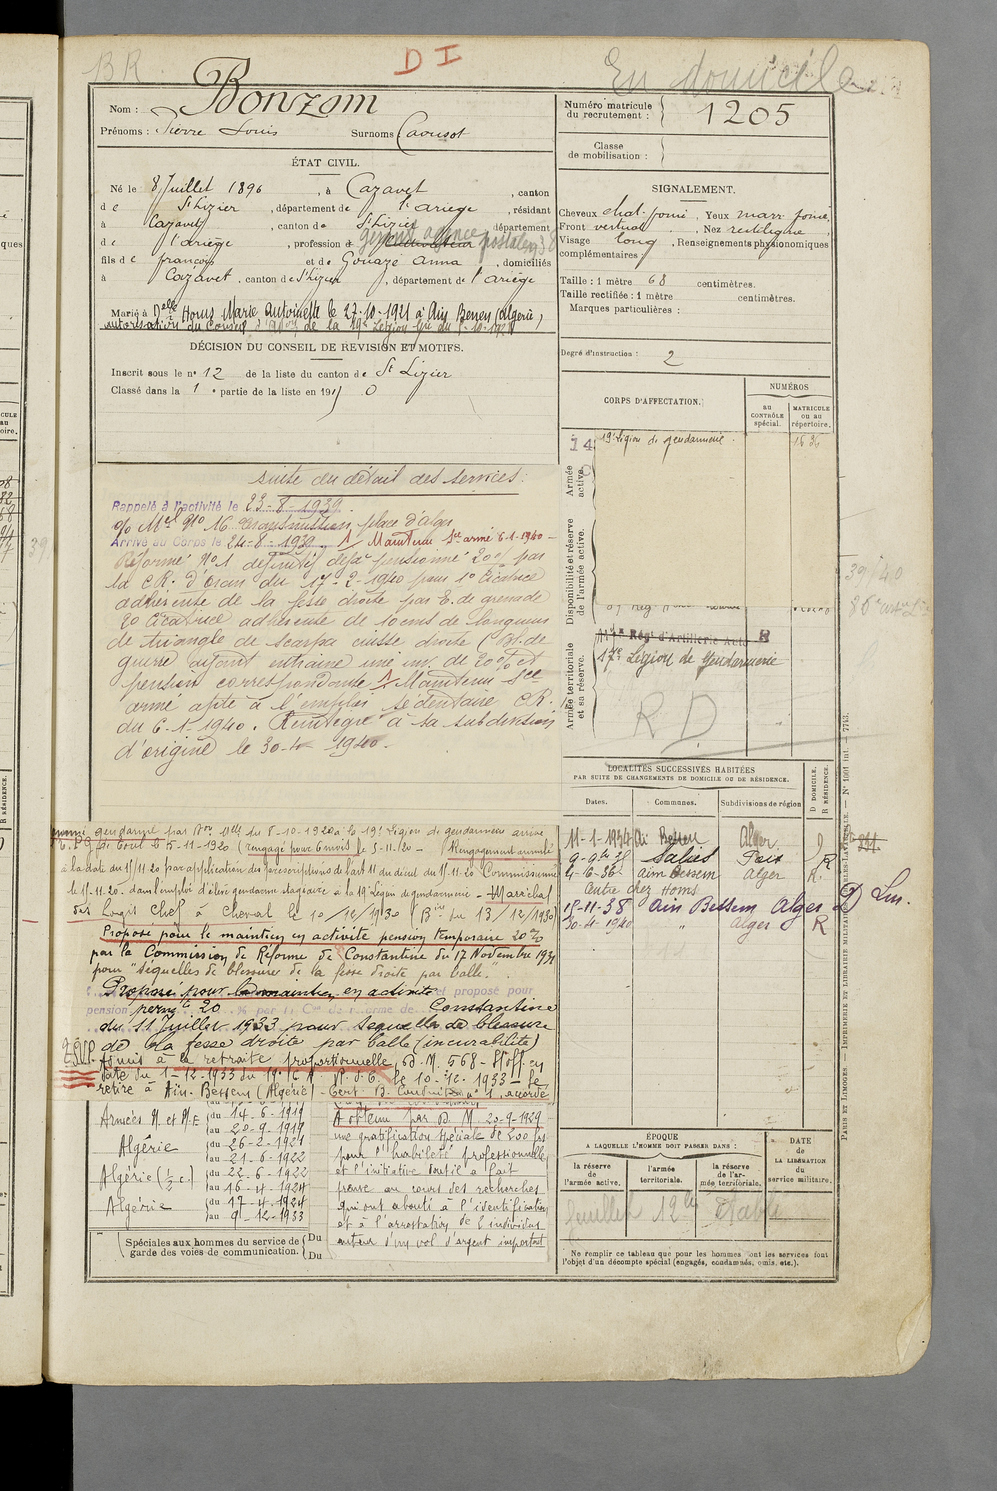 BR
D I
En domicile
Nom : Bonzom
Prénoms : Pierre Louis Surnoms Caousot
Numéro matricule du recrutement : 1205
Classe de mobilisation :
ÉTAT CIVIL.
Né le 8 Juillet 1896, à Cazavet, canton
de St Lizier, département de l'ariège, résidant
à Cazavet, canton de St Lizier département
de l'ariège, profession d cultivateur gérant agence postale
fils de françois et de Gouazé anna, domiciliés
à Cazavet, canton de St Lizier, département de l'ariège
Marié à Delle Homs Marie Antoinette le 27-10-1921 à Aïn Bessem (Algérie)
autorisation du Conseil d'adm. de la 19e Légion
DÉCISION DU CONSEIL DE REVISION ET MOTIFS.
Inscrit sous le no 12 de la liste du canton de St Lizier
Classé dans la 1e partie de la liste en 1915 0
SIGNALEMENT.
Cheveux chat. foncé, Yeux marr foncé,
Front vertical, Nez rectiligne
Visage long, Renseignements physionomiques
complémentaires :
Taille : 1 mètre 68 centimètres.
Taille rectifiée : 1 mètre centimètres.
Marques particulières :
Degré d'instruction : 2
CORPS D'AFFECTATION.
NUMÉROS
au CONTRÔLE spécial.
MATRICULE ou au répertoire.
Armée active.
19e Légion de gendarmerie. 1636
Disponibilité et réserve de l'armée active.
Armée territoriale et sa réserve.
Régt d'Artillerie
17e Légion de Gendarmerie
R D
39/40
suite du détail des services :
Rappelé à l'activité le 23-8-1939.
place d'alger
Arrivé au Corps le 24-8-1939. Maintenu Sce armé 6-1-1940 -
Réformé No 1 définitif déjà pensionné 20% par
la C.R. d'Oran du 17-2-1940 pour 1o Cicatrice
adhérente de la fesse droite par E. de grenade
2o Cicatrice adhérente de 10 cms de longueur
de triangle de scarpa cuisse droite (Bl. de
guerre ayant entrainé une inv. de 20% et
pension correspondante Maintenu Sce
armé apte à l'emploi sédentaire C.R.
du 6-1-1940. Réintégré à sa subdivision
d'origine le 30-4-1940.
LOCALITÉS SUCCESSIVES HABITÉES
PAR SUITE DE CHANGEMENTS DE DOMICILE OU DE RÉSIDENCE.
Dates. Communes. Subdivisions de région
D DOMICILE. R RÉSIDENCE.
11-1-1934 Aïn Bessem Alger D
Salies R
4-6-36 Aïn Bessem Alger R.
Centre chez Homs
15-11-38 Ain Bessem Alger D
30-4 1940 " Alger R
nommé gendarme par Don Mlle du 8-10-1920 à la 19e Légion de gendarmerie arrivé
5-11-1920 (rengagé pour 6 mois le 5-11-20 - Rengagement annulé
à la date du 15/11 20 par application des prescriptions de l'art 11 du décret du 15-11-20 Commissionné
le 15-11-20 dans l'emploi d'élève gendarme stagiaire à la 19e Légion de gendarmerie - Maréchal
des Logis Chef à Cheval le 10/12/1930 (Bin du 13/12/1930)
Proposé pour le maintien en activité pension temporaire 20%
par la Commission de Réforme de Constantine du 17 Novembre 1931
pour "Séquelles de blessure de la fesse droite par balle."
Proposé pour le maintien en activité et proposé pour
pension permte 20 % par la Con de réforme de Constantine
du 11 Juillet 1933 pour séquelles de blessure
de la fesse droite par balle (incurabilité)
Admis à la retraite proportionnelle,
date du 1-12-1933 le 10-12-1933 - Se
retire à Aïn-Bessem (Algérie) - Cert. B. Conduite accordé
Armées N. et N.E du 14-6-1919
au 20-9-1919
Algérie du 26-2-1921
au 21-6-1922
Algérie (½ c.) du 22-6-1922
au 16-4-1924
Algérie du 17-4-1924
au 9-12-1933
A obtenu par D. M. 23-9-1929
une gratification spéciale de 200 frs
pour l'habileté professionnelle
et l'initiative dont il a fait
preuve au cours des recherches
qui ont abouti à l'identification
et à l'arrestation de l'individu
auteur d'un vol d'argent important
Spéciales aux hommes du service de garde des voies de communication. Du
Du
ÉPOQUE
A LAQUELLE L'HOMME DOIT PASSER DANS :
la réserve de l'armée active.
l'armée territoriale.
la réserve de l'armée territoriale.
DATE de LA LIBÉRATION du service militaire.
Ne remplir ce tableau que pour les hommes dont les services font
l'objet d'un décompte spécial (engagés, condamnés, omis, etc.).